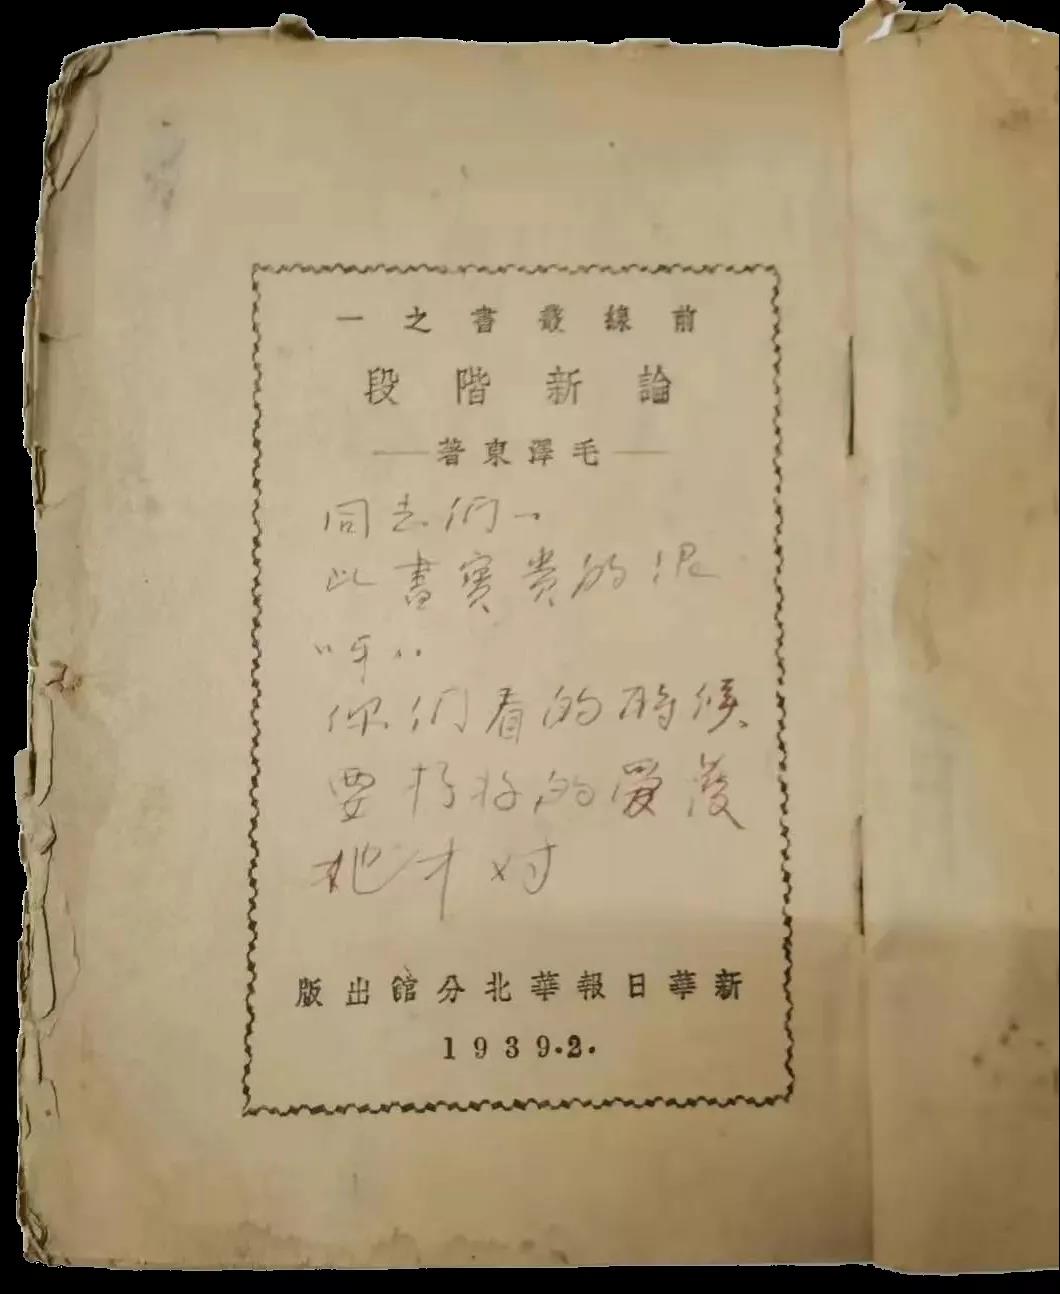 前線叢書之一
論新階段
——毛澤東著——
同志们、
此書寶貴的很
呀..
你们看的時候
要好好的愛護
他才对
新華日報華北分館出版
1939.2.